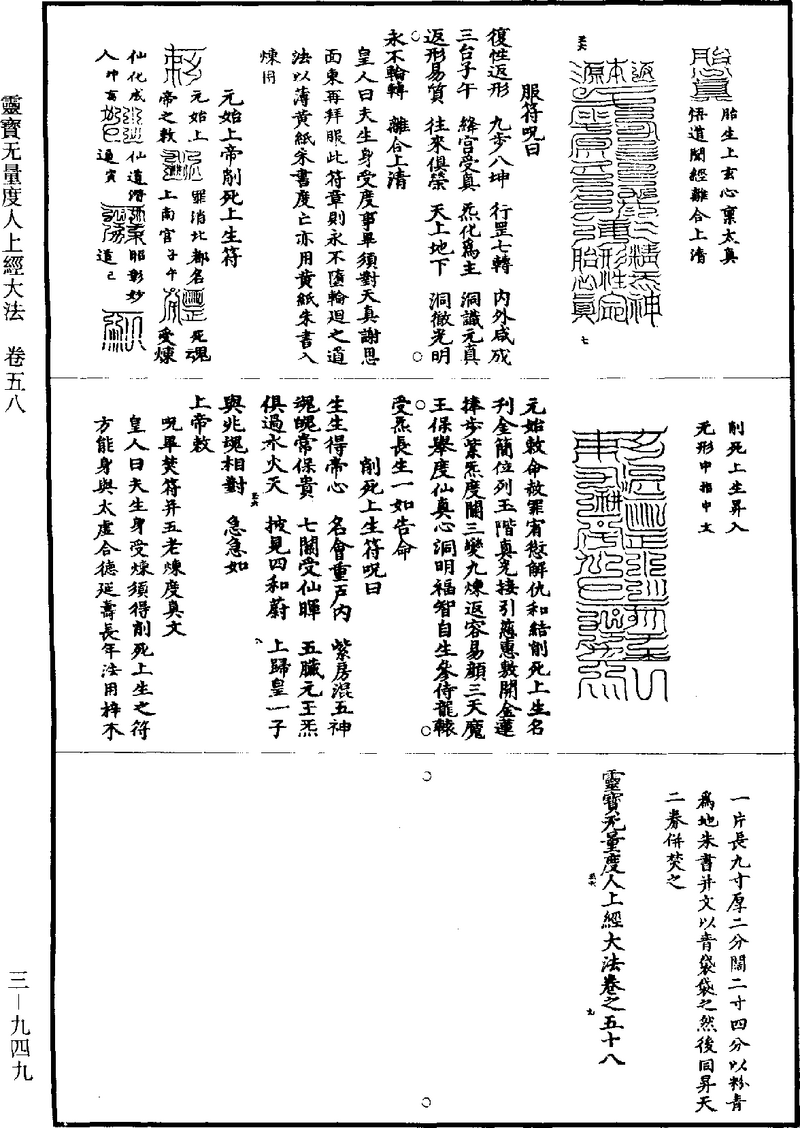 胎生上玄心稟太真
悟道聞經離合上清
服符呪曰
復性返形　九步八坤　行罡七轉　內外咸成
三台子午　絳宮受真　炁化為主　洞識元真
返形易質　往來俱榮　天上地下　洞徹光明
永不輪轉　離合上清
皇人曰夫生身受度事畢須對天真謝恩
面東再拜服此符章則永不墮輪迴之道
法以薄黃紙朱書度亡亦用黃紙朱書入
煉用
元始上帝削死上生符
元始上
罪消北都名
死魂
帝之敕
上南宮子午
受煉
仙化成
仙道潛
昭彰妙
入中言
通寅
道已
削死上生昇入
无形中指中文
元始敕命赦罪宥愆解仇和結削死上生名
刊金簡位列玉階真皇接引慈惠敷開金蓮
捧步紫炁度關三變九煉返容易顏三天魔
王保舉度仙真心洞明福智自生參侍龍轅
受炁長生一如告命
削死上生符呪曰
生生得帝心　名會重戶內　紫房混五神
魂魄常保貴　七關受仙暉　五臟元王炁
俱過水火天　披見四和蔚　上歸皇一子
與兆魂相對　急急如
上帝敕
呪畢焚符并五老煉度真文
皇人曰夫生身受煉須得削死上生之符
方能身與太虛合德延壽長年法用梓木
一片長九寸厚二分闊二寸四分以粉青
為地朱書并文以青袋袋之然後回昇天
二券併焚之
靈寶无量度人上經大法卷之五十八
靈寶无量度人上經大法　卷五八
三－九四九